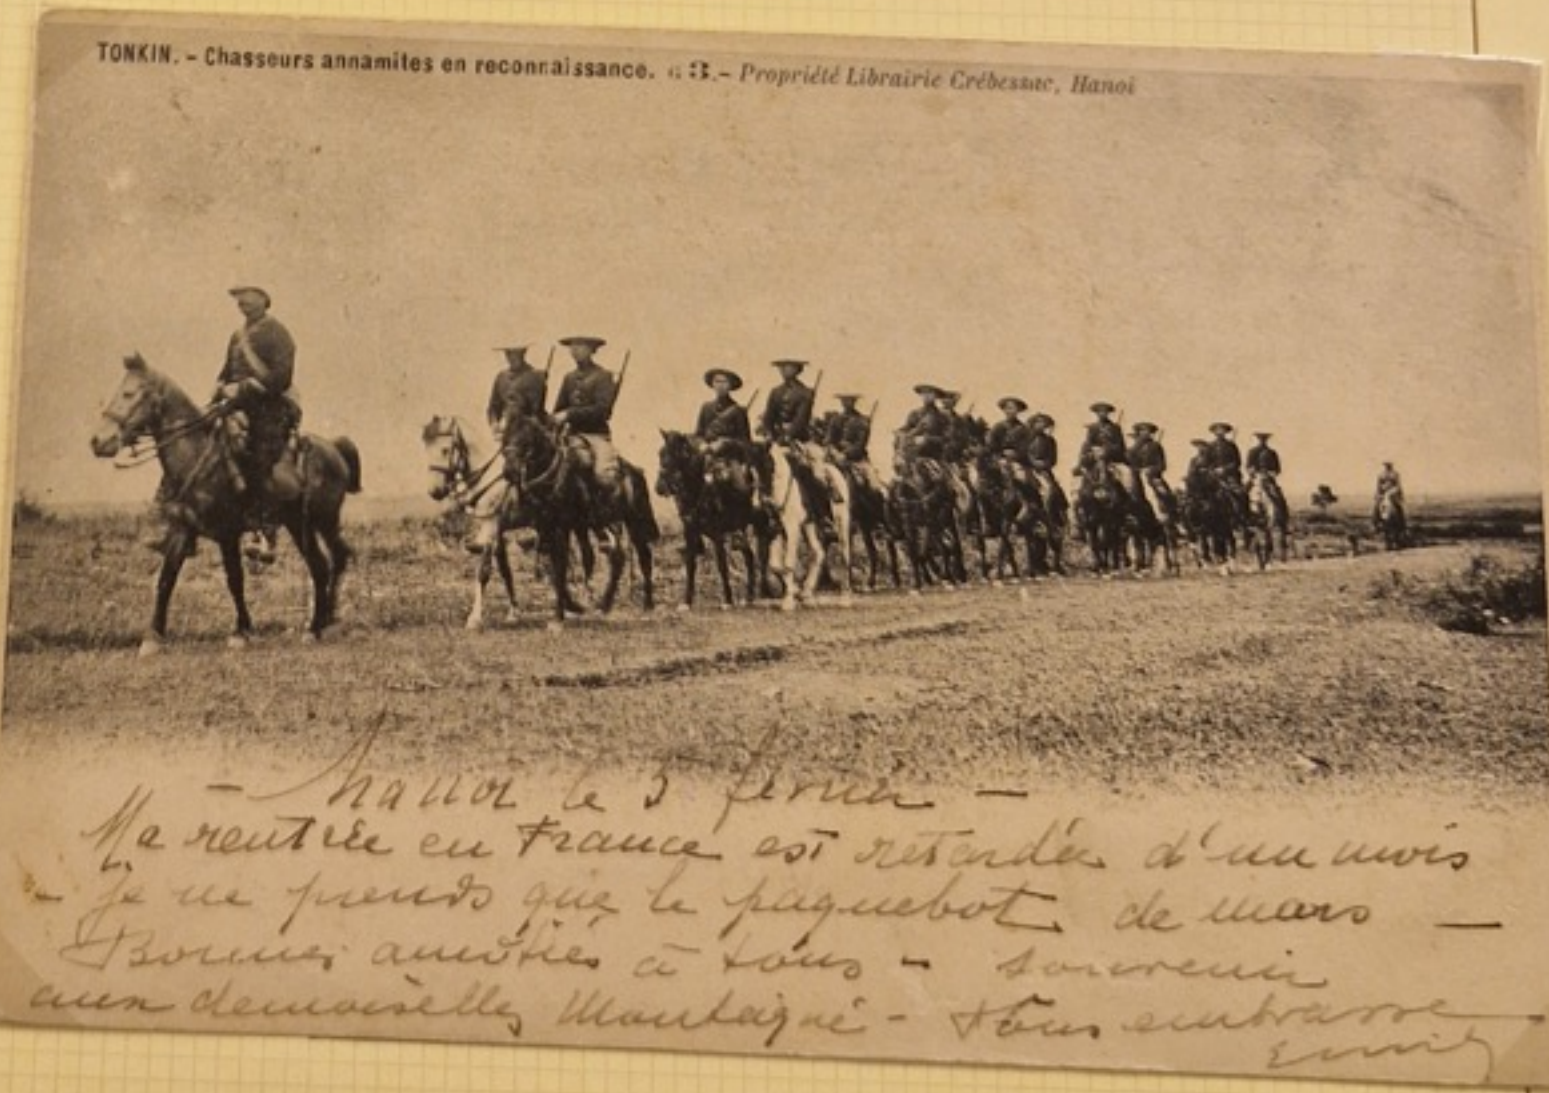 TONKIN. - Chasseurs annamites en reconnaissance. - Propriété Librairie Crébessac, Hanoi
- Hanoi le 5 février -
Ma rentrée en France est retardée d'un mois
- je ne prends que le paquebot de mars -
Bonnes amitiés à tous - souvenir
aux demoiselles Montaigné - Vous embrasse